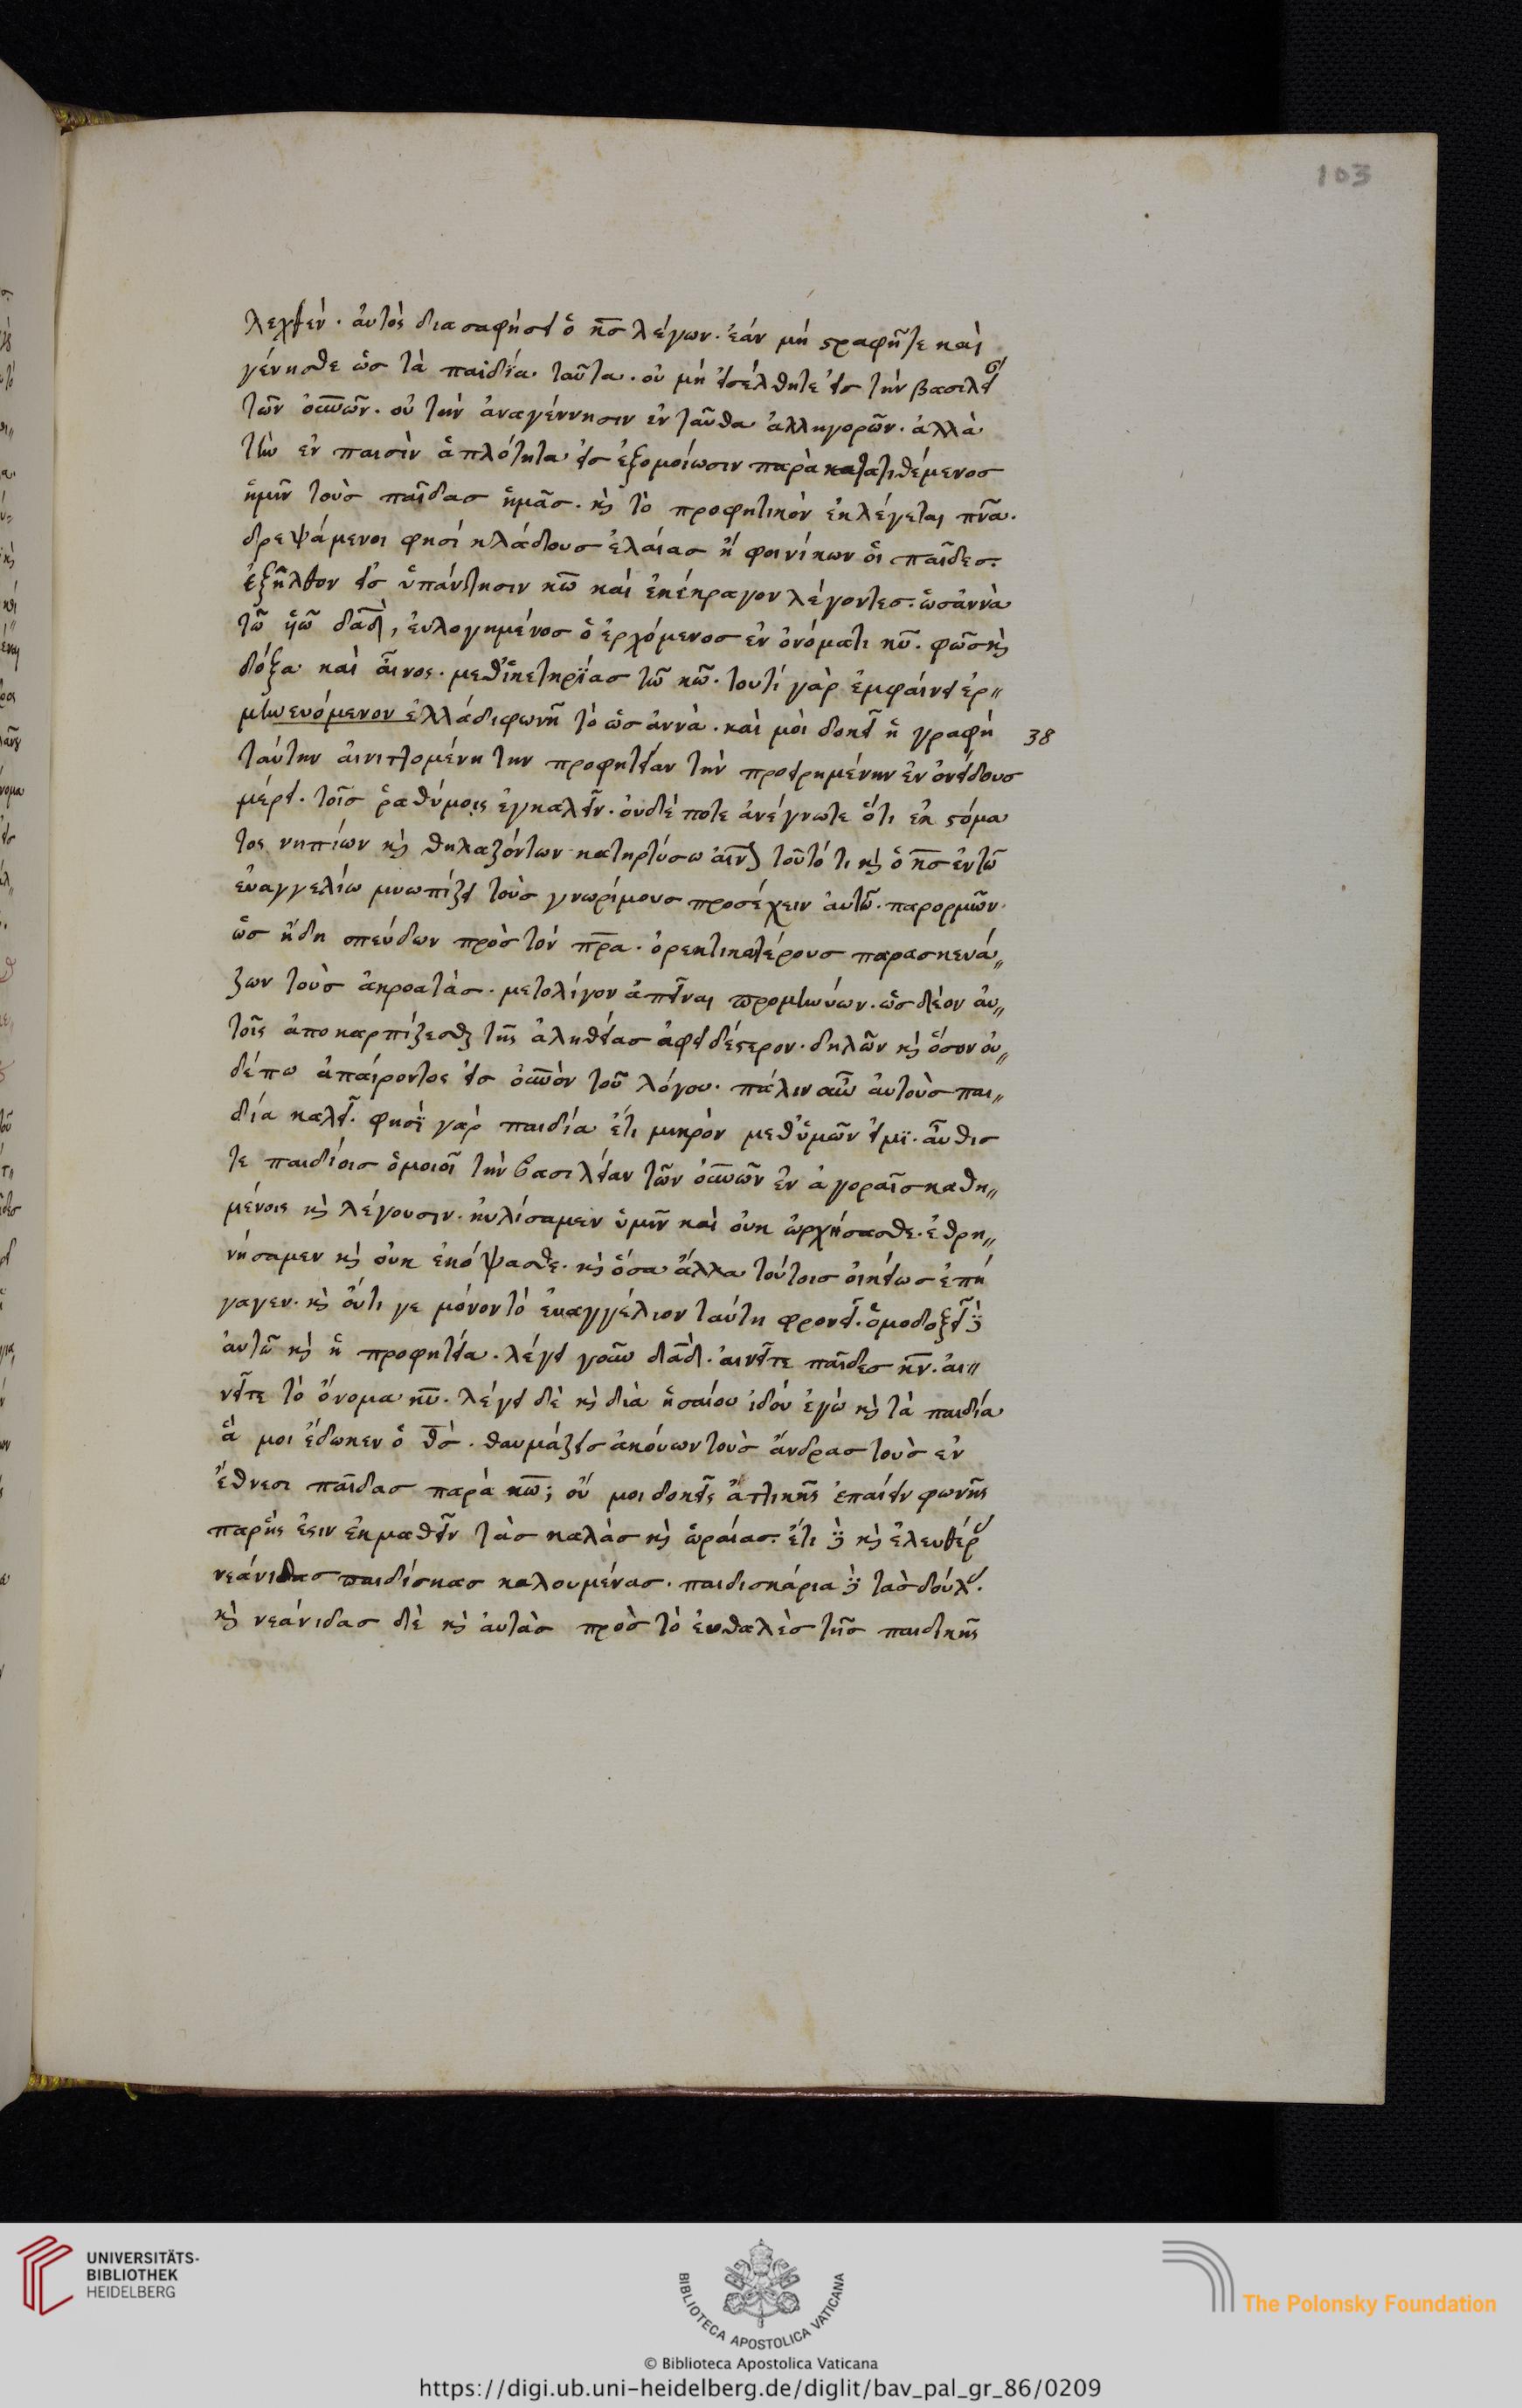 103
λεχθέν. ἀυτὸς διασαφήσει ὁ κ̅ς̅ λέγων. ἐάν μὴ στραφῆτε καὶ
γένησθε ὡσ τὰ παιδία ταῦτα. οὐ μὴ εἰσέλθητε εἰσ τὴν βασιλεί
τῶν ο̅υ̅ν̅ῶν. οὐ τὴν ἀναγέννησιν ἐν ταῦθα ἀλληγορῶν. ἀλλὰ
τὴν ἐν παισὶν ἁπλότητα εἰσ ἐξομοίωσιν παρὰ κατατιθέμενοσ
ἡμῖν τοὺσ παῖδασ ἡμᾶσ. κὶ τὸ προφητικὸν ἐκλέγεται π̅ν̅α̅.
δρεψάμενοι φησί κλάδους ἐλαίασ ἢ φοινίκων ὁι παῖδεσ.
ἐξῆλθον εἰσ ὑπάντησιν κ̅ω̅ καὶ ἐκέκραγον λέγοντεσ. ὡσἀννὰ
τῶ ὑ̅ῶ̅ δ̅α̅δ̅, ἐυλογημένοσ ὁ ἐρχόμενοσ ἐν ὀνόματι κ̅υ̅. φῶσ κὶ
δόξα καὶ ἆινος. μεθ' ἱκετηρίας τῶ κ̅ω̅. τουτὶ γὰρ ἐμφαίνει ἑρ〃
μηνευόμενον ἑλλάδι φωνῆ τὸ ὡσ ἀννὰ. καὶ μὸι δοκεῖ ἡ γραφὴ 38
ταύτην ἀινιττομένη την προφητείαν τὴν προειρημένην ἐν ὀνείδους
μέρει. τοῖσ ῥαθύμοις ἐγκαλεῖν. ὀυδέποτε ἀνέγνωτε ὅτι ἐκ στόμα
τος νηπίων κὶ θηλαζόντων κατηρτίσω ἆινον τοῦτό τι κὶ ὁ κ̅σ̅ ἐν τῶ
ἐυαγγελίω μυωπίζει τοὺσ γνωρίμουσ προσέχειν ἀυτῶ. παρορμῶν.
ὡσ ἤδη σπεύδων πρὸσ τὸν π̅ρ̅α̅. ὀρεκτικοτέρους παρασκευά〃
ζων τοὺσ ἀκροατὰσ. μετολίγον ἀπεῖναι προμηνύων. ὡσ δέον ἀυ〃
τοῖς ἀποκαρπίζεσθαι τῆς ἀληθείασ ἀφειδέστερον. δηλῶν κὶ ὅσον ὀυ〃
δέπω ἀπαίροντος εἰσ ο̅υ̅ν̅ὸν τοῦ λόγου. πάλιν ο̅υ̅ν ἀυτοὺσ παι〃
δία καλεῖ. φησὶ γάρ παιδία ἔτι μικρὸν μεθ' ὑμῶν εἰμι. ἆυθισ
τε παιδίοισ ὁμοιοῖ τὴν βασιλείαν τῶν ο̅υ̅ν̅ῶν ἐν ἀγοραῖσ καθη〃
μένοις κὶ λέγουσιν. ηὐλίσαμεν ὑμῖν καὶ ὀυκ ὠρχήσασθε. ἐθρη〃
νήσαμεν κὶ ὀυκ ἐκόψασθε. κὶ ὅσα ἄλλα τούτοισ ὀικείωσ ἐπή
γαγεν. κὶ ὄυτι γε μόνον τὸ ἐυαγγέλιον ταύτη φρονεῖ. ὁμοδοξεῖ δὲ
ἀυτῶ κὶ ἡ προφητεία. λέγει γοῦν δ̅α̅δ̅. ἀινεῖτε παῖδεσ κ̅ν̅. ἀι〃
νεῖτε τὸ ὄνομα κ̅υ̅. λέγει δὲ κὶ διὰ ἡσαίου ἰδοὺ ἐγὼ κὶ τὰ παιδία
ἅ μοι ἔδωκεν ὁ θ̅σ̅. θαυμάζεισ ἀκούων τοὺσ ἄνδρασ τοὺσ ἐν
ἔθνεσι παῖδασ παρὰ κ̅ω̅; οὔ μοι δοκεῖς ἀττικῆς ἐπαίειν φωνῆς
παρ' ἧς ἔστιν ἐκμαθεῖν τὰσ καλὰσ κὶ ὡραίασ. ἔτι δὲ κὶ ἐλευθέρ
νεάνιδασ παιδίσκασ καλουμένασ. παιδισκάρια δὲ τασ δούλ.
κὶ νεάνιδασ δὲ κὶ ἀυτὰσ πρὸσ τὸ ἐυθαλὲσ τῆσ παιδικῆς
UNIVERSITÄTS-
BIBLIOTHEK
HEIDELBERG
BIBLIOTECA APOSTOLICA VATICANA
The Polonsky Foundation
© Biblioteca Apostolica Vaticana
https://digi.ub.uni-heidelberg.de/diglit/bav_pal_gr_86/0209